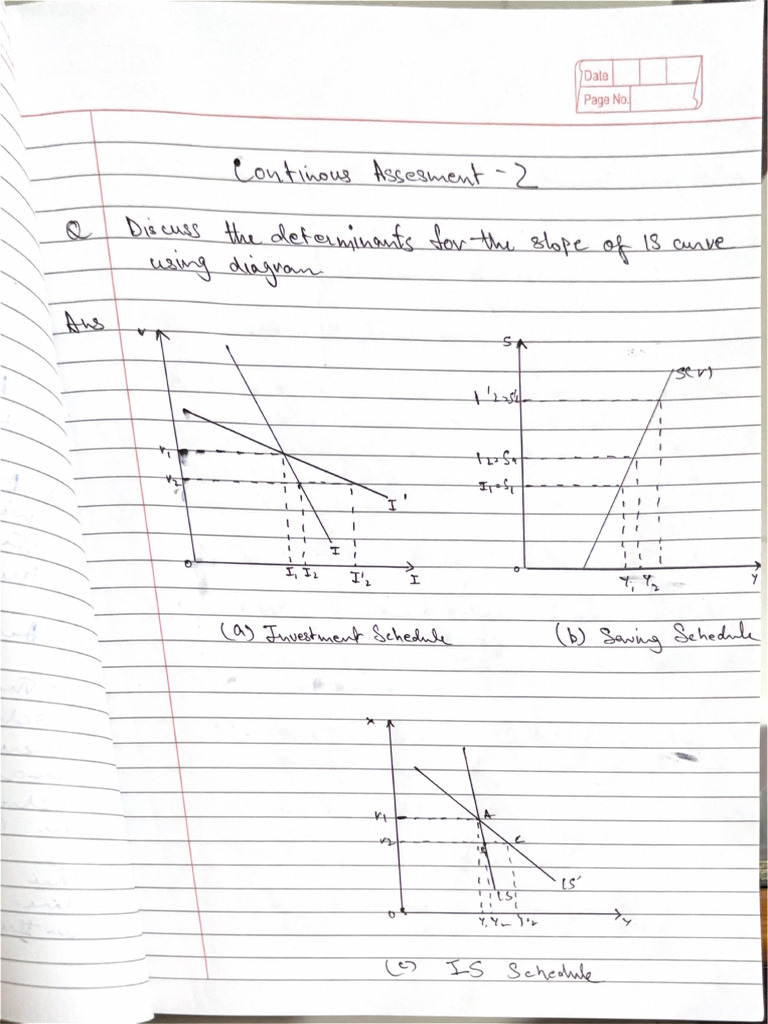 Date
Page No.
Continous Assesment - 2
Q Discuss the determinants for the slope of IS curve
using diagram
Ans
r
S
S(Y)
I'2=S'2
r1
I2=S2
r2
I1=S1
I'
I
O
I1 I2 I'2 I
O
Y1 Y2 Y
(a) Investment Schedule
(b) Saving Schedule
r1
A
r2
C
IS'
IS
O
Y1 Y2 Y'2 Y
(c) IS Schedule